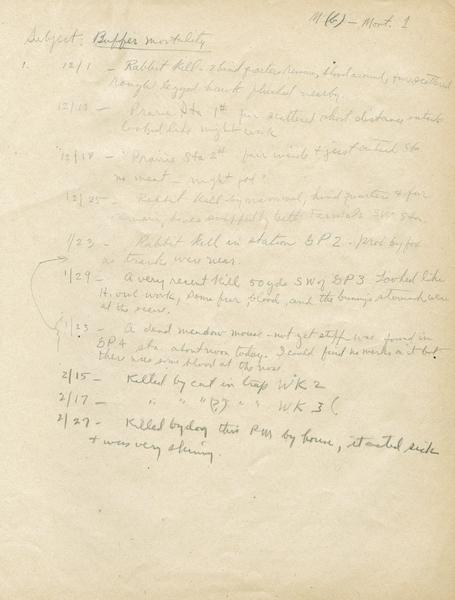 M (6) - Mont. 1
Subject: Buffer mortality
1. 12/1 - Rabbit kill - 2 hind quarters remain, blood around, fur scattered
Rough legged hawk flushed nearby.
12/13 - Prairie Sta 1st fur scattered short distance outside
looked like might
12/18 - Prairie Sta 2nd fur inside + just outside Sta
no meat - might
12/25 - Rabbit kill by mammal, hind quarters & fur
remain, SW Sta.
1/23 - Rabbit kill in station GP2. Prob by fox
as tracks were near.
1/29 - A very recent kill 50 yds SW of GP3. Looked like
H. owl work, some fur, blood, and the bunny's stomach were
at the scene.
1/23 - A dead meadow mouse - not yet stiff was found in
GP4 sta. about noon today. I could find no marks on it but
there was some blood at the nose.
2/15 - Killed by cat in trap WK 2
2/17 - " " " (?) " " WK 3 (
2/27 - Killed by dog this PM by house, it acted sick
+ was very skinny.